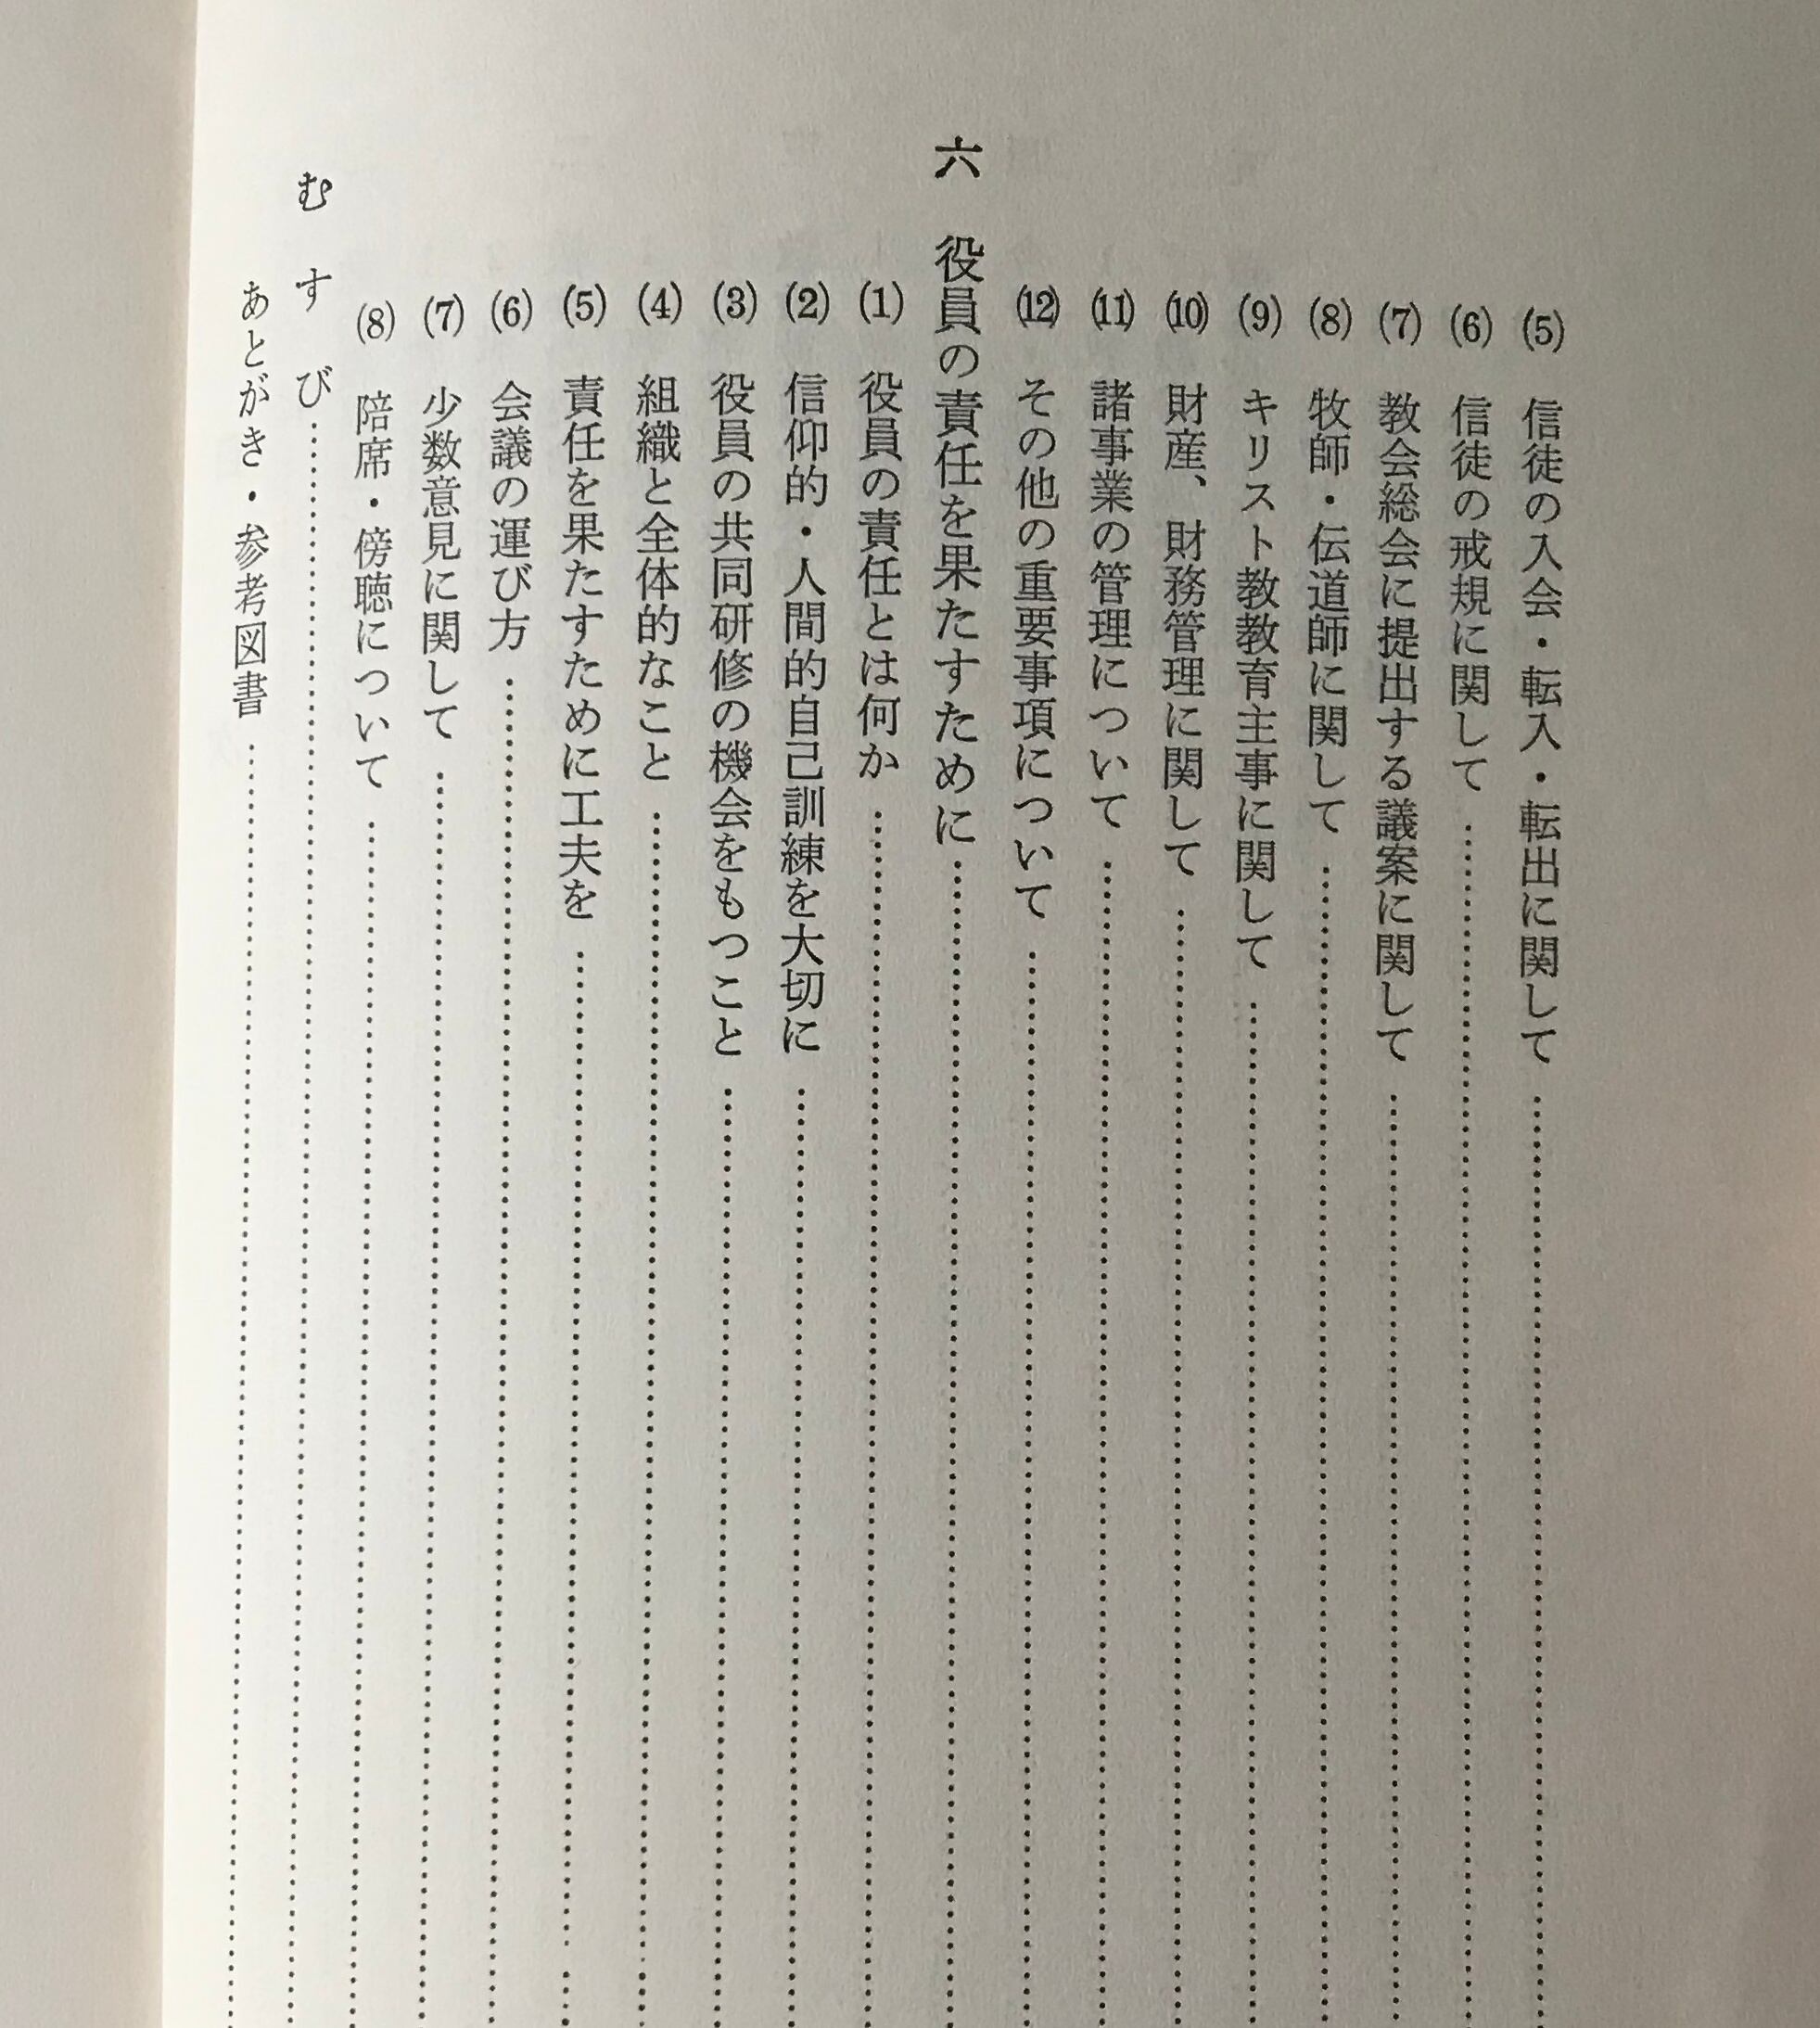 (5) 信徒の入会・転入・転出に関して
(6) 信徒の戒規に関して
(7) 教会総会に提出する議案に関して
(8) 牧師・伝道師に関して
(9) キリスト教教育主事に関して
(10) 財産、財務管理に関して
(11) 諸事業の管理について
(12) その他の重要事項について
六 役員の責任を果たすために
(1) 役員の責任とは何か
(2) 信仰的・人間的自己訓練を大切に
(3) 役員の共同研修の機会をもつこと
(4) 組織と全体的なこと
(5) 責任を果たすために工夫を
(6) 会議の運び方
(7) 少数意見に関して
(8) 陪席・傍聴について
むすび
あとがき・参考図書